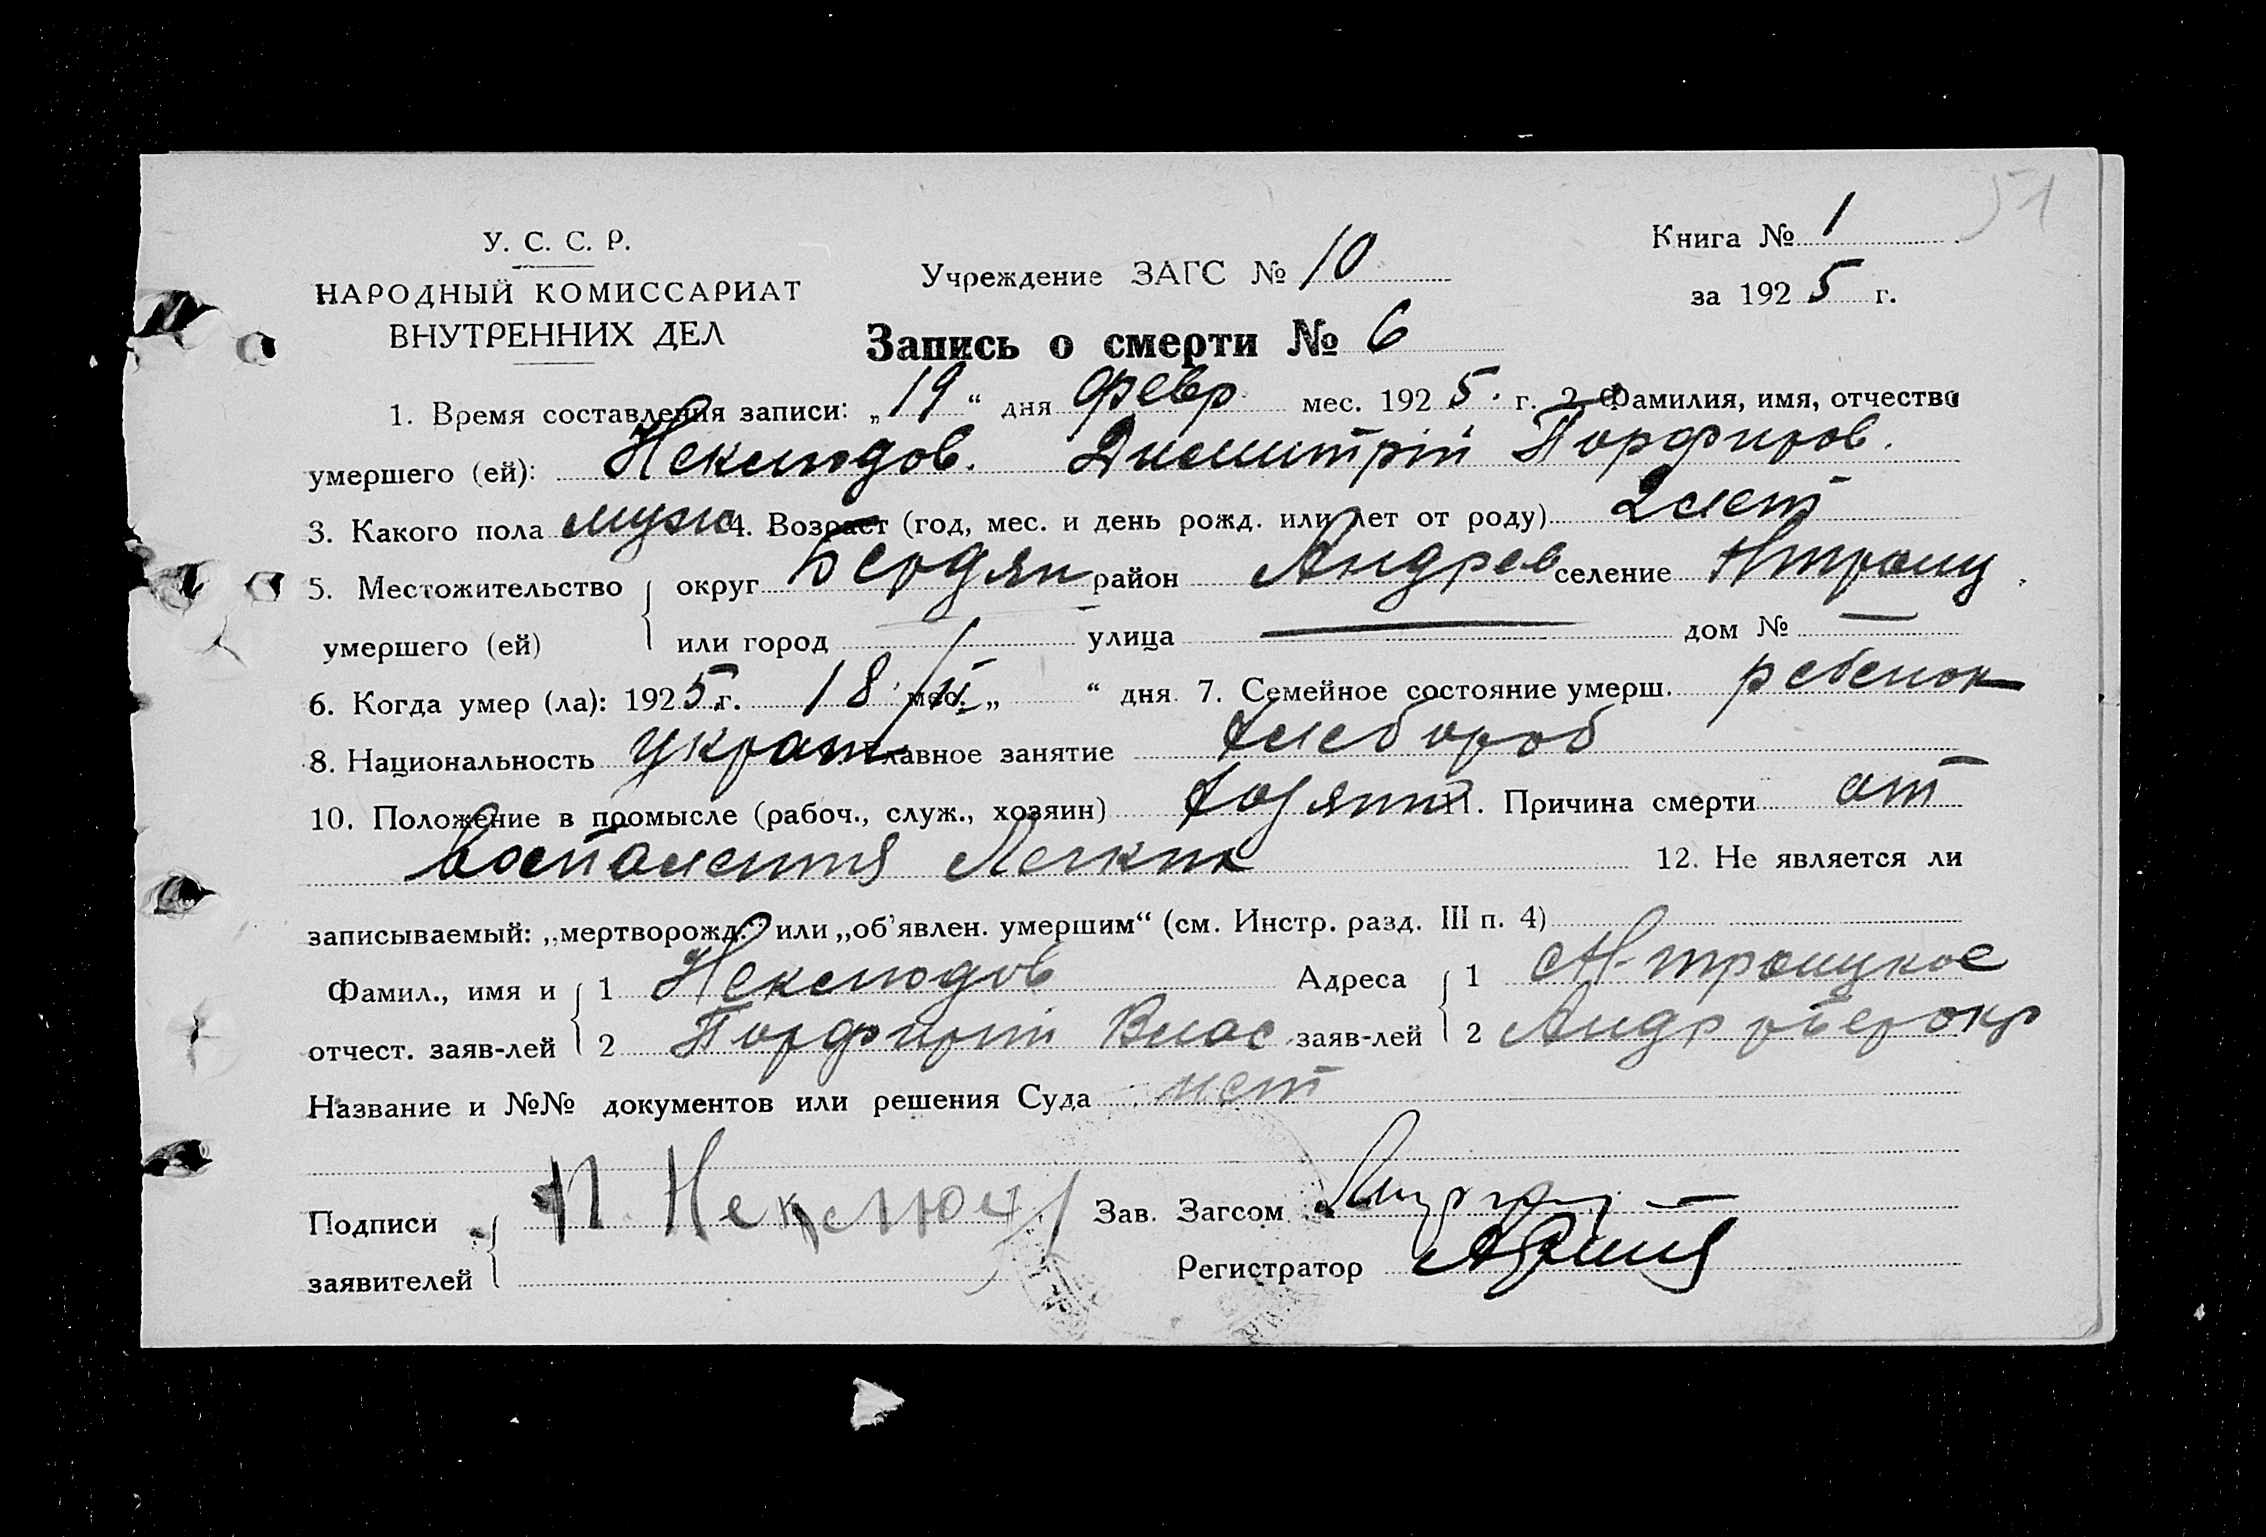 51
У. С. С. Р.
НАРОДНЫЙ КОМИССАРИАТ
ВНУТРЕННИХ ДЕЛ
Учреждение ЗАГС № 10
Книга № 1
за 1925 г.
Запись о смерти № 6
1. Время составления записи: „19“ дня февр мес. 1925. г. 2. Фамилия, имя, отчество
умершего (ей): Неклюдов. Димитрій Порфиров.
3. Какого пола муж 4. Возраст (год, мес. и день рожд. или лет от роду) 2 лет
5. Местожительство округ Бердян район Андрев селение Нтроиц.
умершего (ей) или город — улица — дом № —
6. Когда умер (ла): 1925 г. 18/II мес. „ “ дня. 7. Семейное состояние умерш. ребенок
8. Национальность украин главное занятие хлебороб
10. Положение в промысле (рабоч., служ., хозяин) хозяин 11. Причина смерти от
воспаления Легких 12. Не является ли
записываемый: „мертворожд.“ или „об’явлен. умершим“ (см. Инстр. разд. III п. 4)
Фамил., имя и 1 Неклюдов Адреса 1 Н-троицкое
отчест. заяв-лей 2 Порфирій Влас заяв-лей 2 Андр р Бер окр
Название и №№ документов или решения Суда нет
Подписи П. Неклюд Зав. Загсом
заявителей Регистратор